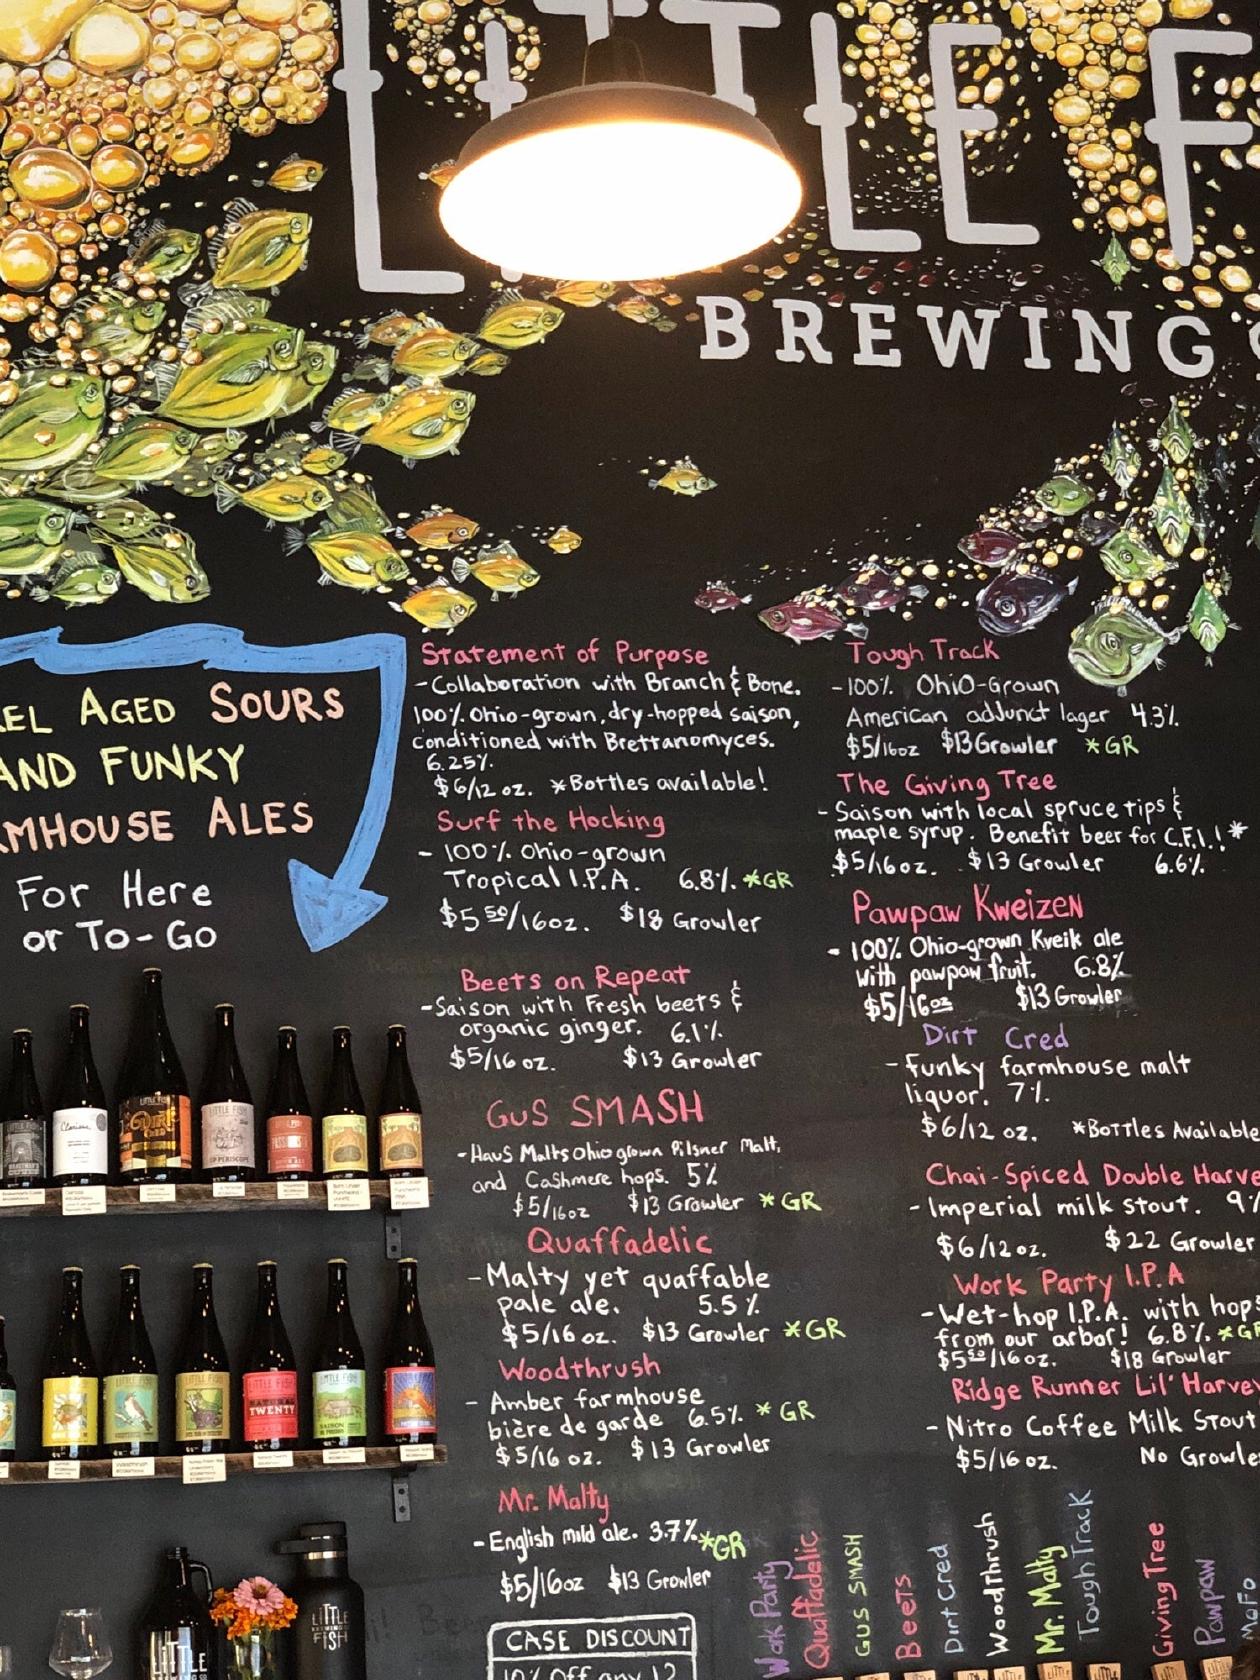 LITTLE F
BREWING
EL AGED SOURS
AND FUNKY
RMHOUSE ALES
For Here
or To-Go
Statement of Purpose
-Collaboration with Branch & Bone.
100% Ohio-grown, dry-hopped saison,
conditioned with Brettanomyces.
6.25%.
$6/12 oz. *Bottles available!
Surf the Hocking
- 100% Ohio-grown
Tropical I.P.A. 6.8%. *GR
$5 50/16oz. $18 Growler
Beets on Repeat
-Saison with Fresh beets &
organic ginger. 6.1%
$5/16 oz. $13 Growler
GUS SMASH
-Haus Malts Ohio grown Pilsner Malt,
and Cashmere hops. 5%
$5/16oz $13 Growler *GR
Quaffadelic
-Malty yet quaffable
pale ale. 5.5%
$5/16 oz. $13 Growler *GR
Woodthrush
- Amber farmhouse
bière de garde 6.5% *GR
$5/16 oz. $13 Growler
Mr. Malty
-English mild ale. 3.7% *GR
$5/16oz $13 Growler
CASE DISCOUNT
10% Off any 12
Tough Track
-100% OhiO-Grown
American adjunct lager 4.3%.
$5/16oz $13 Growler *GR
The Giving Tree
-Saison with local spruce tips &
maple syrup. Benefit beer for C.F.I.! *
$5/16oz. $13 Growler 6.6%.
Pawpaw Kweizen
- 100% Ohio-grown Kveik ale
with pawpaw fruit. 6.8%
$5/16oz $13 Growler
Dirt Cred
-Funky farmhouse malt
liquor. 7%.
$6/12 oz. *Bottles Available
Chai-Spiced Double Harve
-Imperial milk stout. 9%
$6/12 oz. $22 Growler
Work Party I.P.A
-Wet-hop I.P.A. with hops
from our arbor! 6.8%. *GR
$5 50/16oz. $18 Growler
Ridge Runner Lil' Harves
- Nitro Coffee Milk Stout
$5/16 oz. No Growle
Work Party
Quaffadelic
GUS SMASH
BEETS
Dirt Cred
WoodThrush
Mr. Malty
Tough Track
Giving Tree
Pawpaw
MoFo
LITTLE FISH
NATURAL
TWENTY
SAISON
LITTLE
FISH
LITTLE